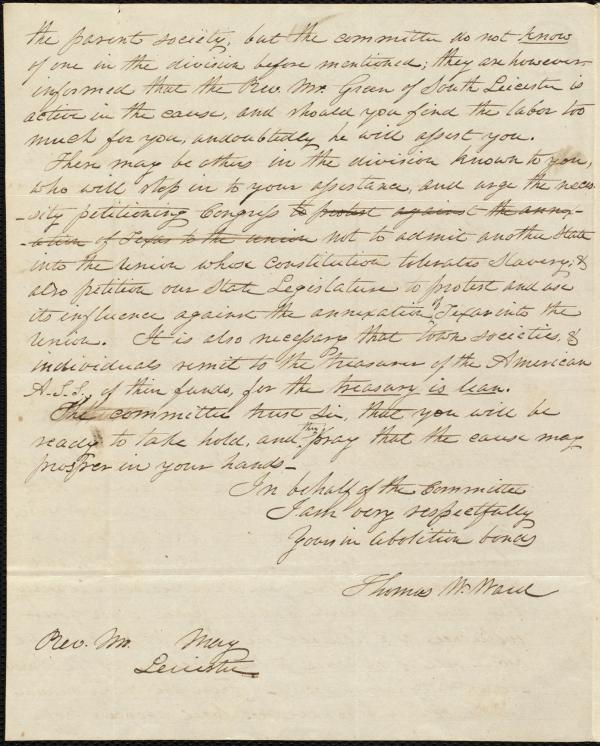 the parent society, but the committee do not know
of one in the division before mentioned; they are however
informed that the Rev. Mr. Green of South Leicester is
active in the cause, and should you find the labor too
much for you, undoubtedly he will assist you.
There may be others in the division known to you,
who will step in to your assistance, and urge the neces-
-sity petitioning Congress to protest against the annex-
-ation of Texas to the union not to admit another State
into the Union whose constitution tolerates Slavery; &
also petition our State Legislature to protest and use
its influence against the annexation of Texas into the
Union. It is also necessary that town societies, &
individuals remit to the treasurer of the American
A.S.S., of thier funds, for the treasury is lean.
The committee trust Sir, that you will be
ready to take hold, and they pray that the cause may
prosper in your hands_
In behalf of the Committee
I am very respectfully
Yours in abolition bonds
Thomas W. Ward
Rev. Mr. May
Leicester